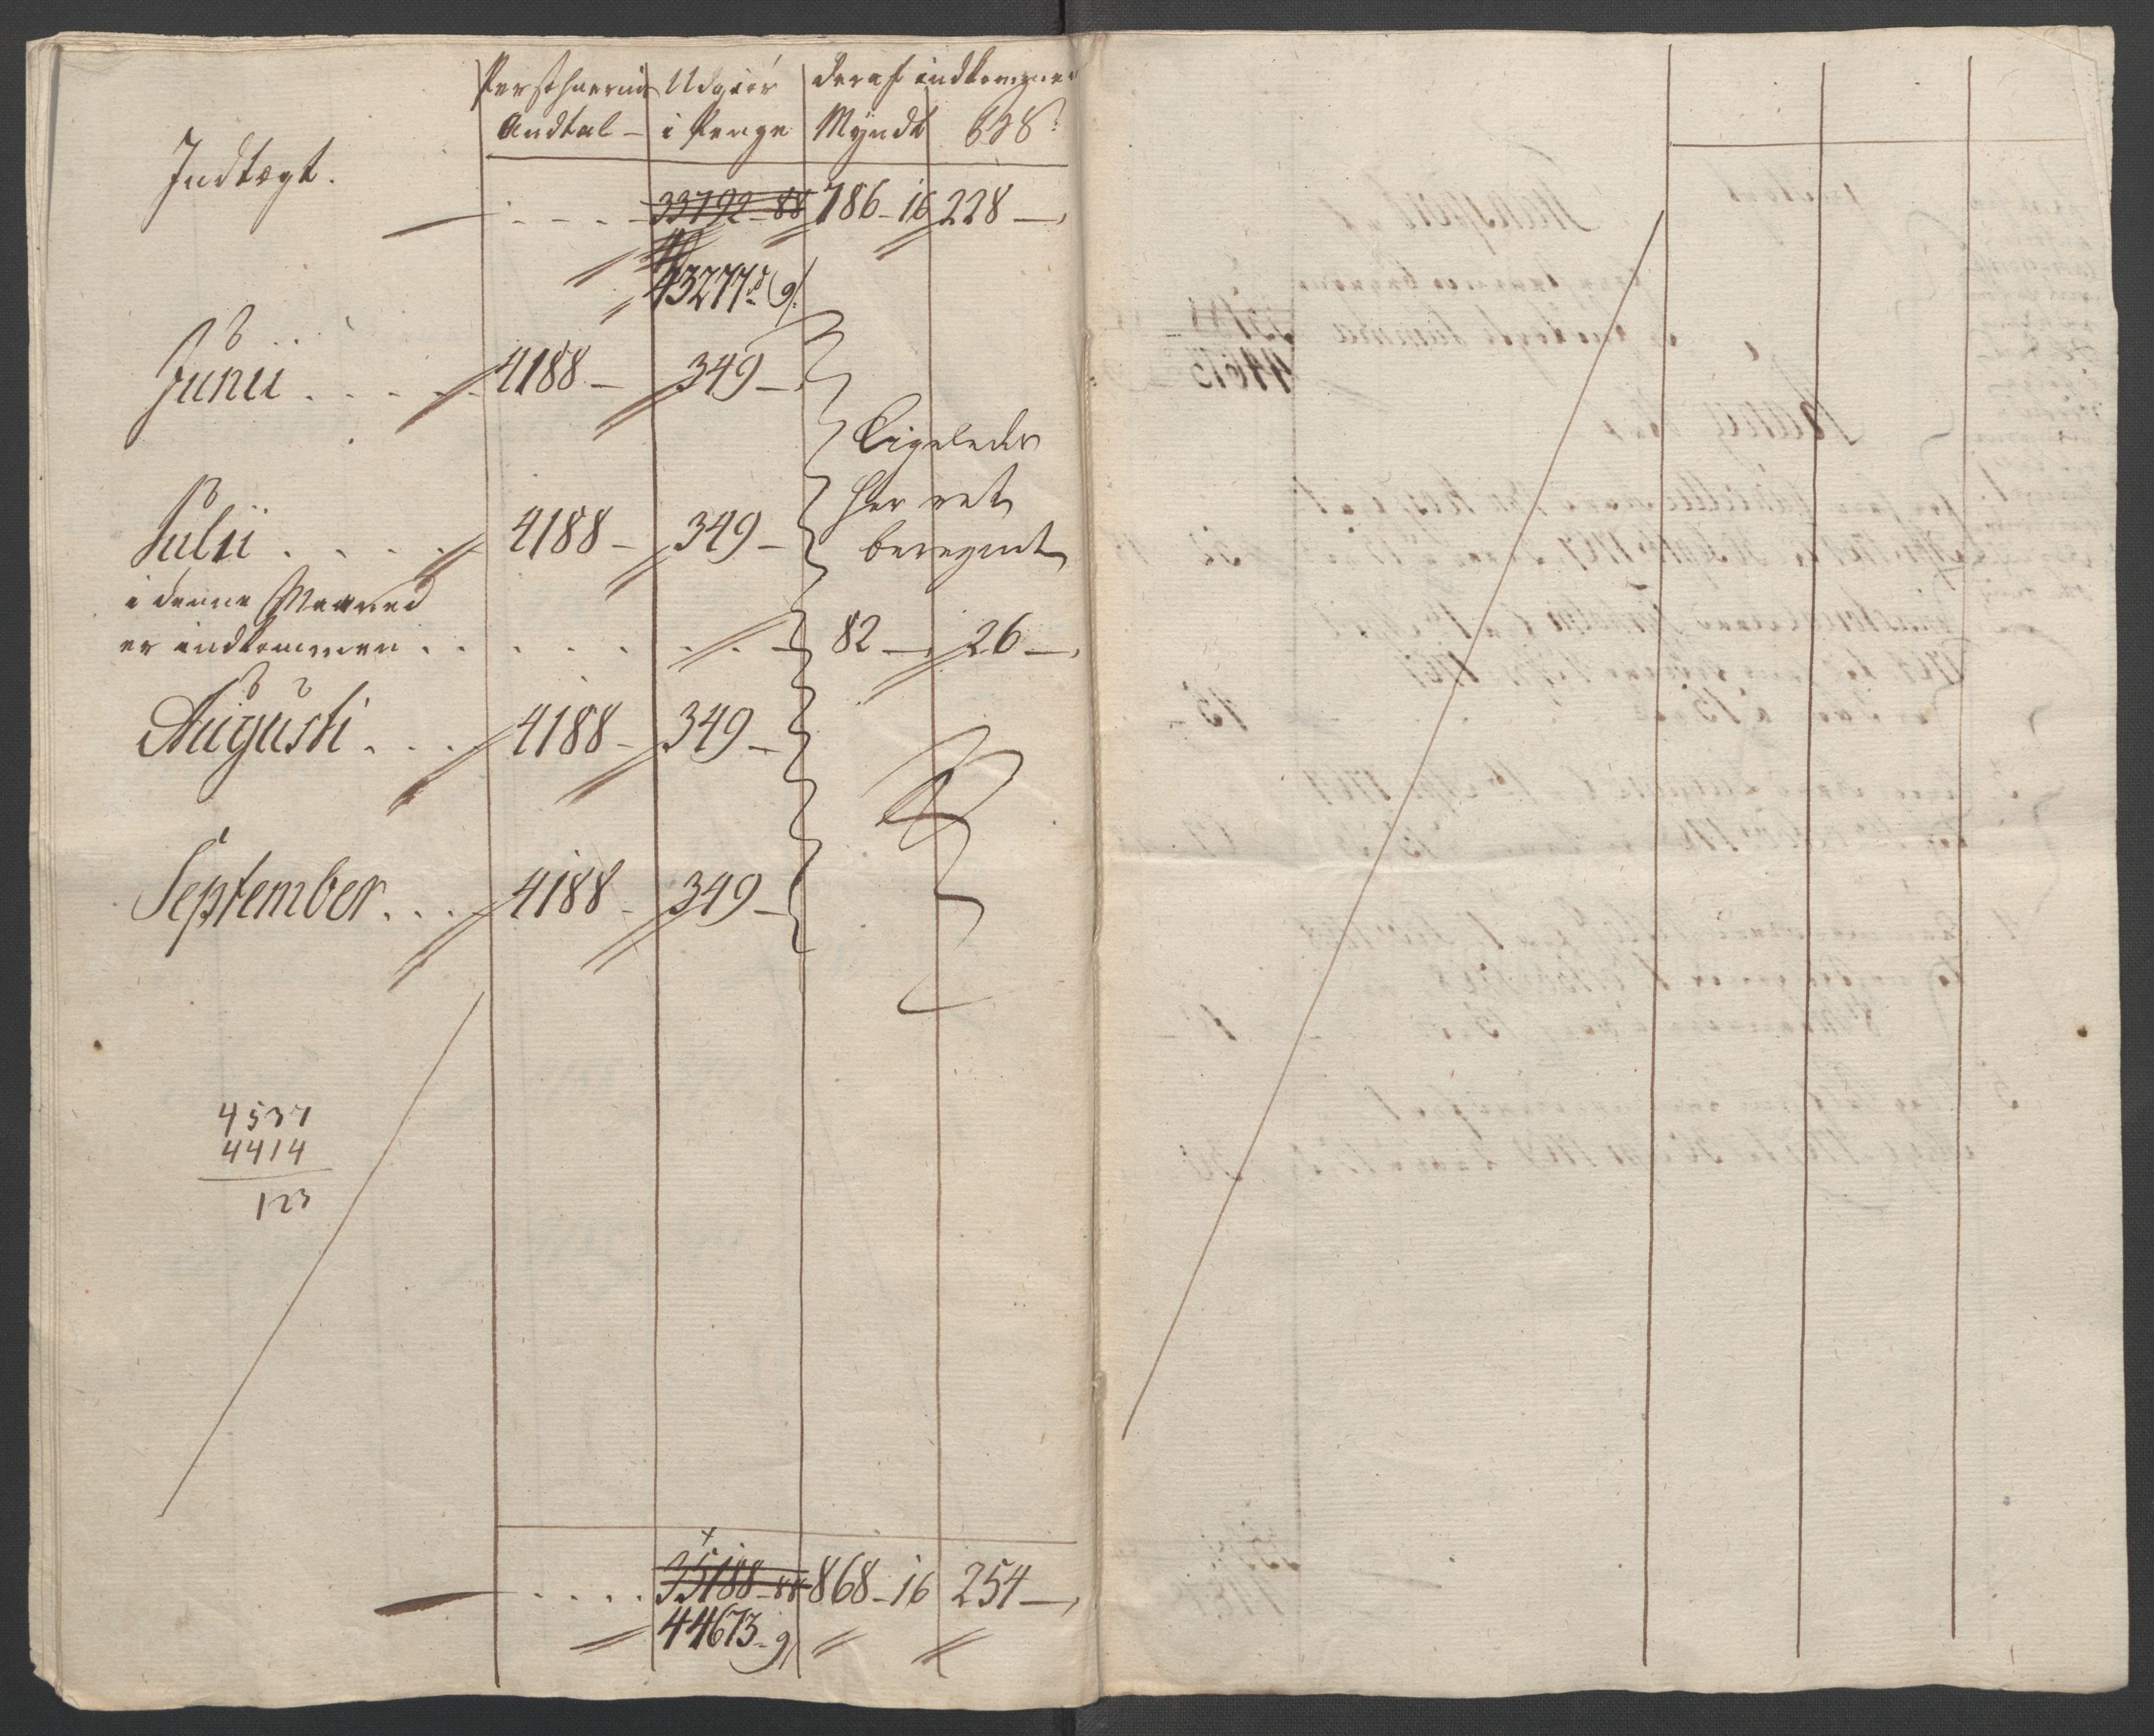 Indtægt.
Persohnernis Udgiør deraf indkomgner
Andtal - i Penge Myndt
33792 - 88 786 - 16 228 -
43277 - 9
Junii . . . . 4188 - 349 -
Ligeledes
her ret
beregnet
Julii . . . . 4188 - 349 -
i denne Maaned
er indkommen . . . . . . . 82 - 26 -
Augusti . . . 4188 - 349 -
September . . . 4188 - 349 -
4537
4414
123
35188 - 88 868 - 16 254 -
44673 - 9